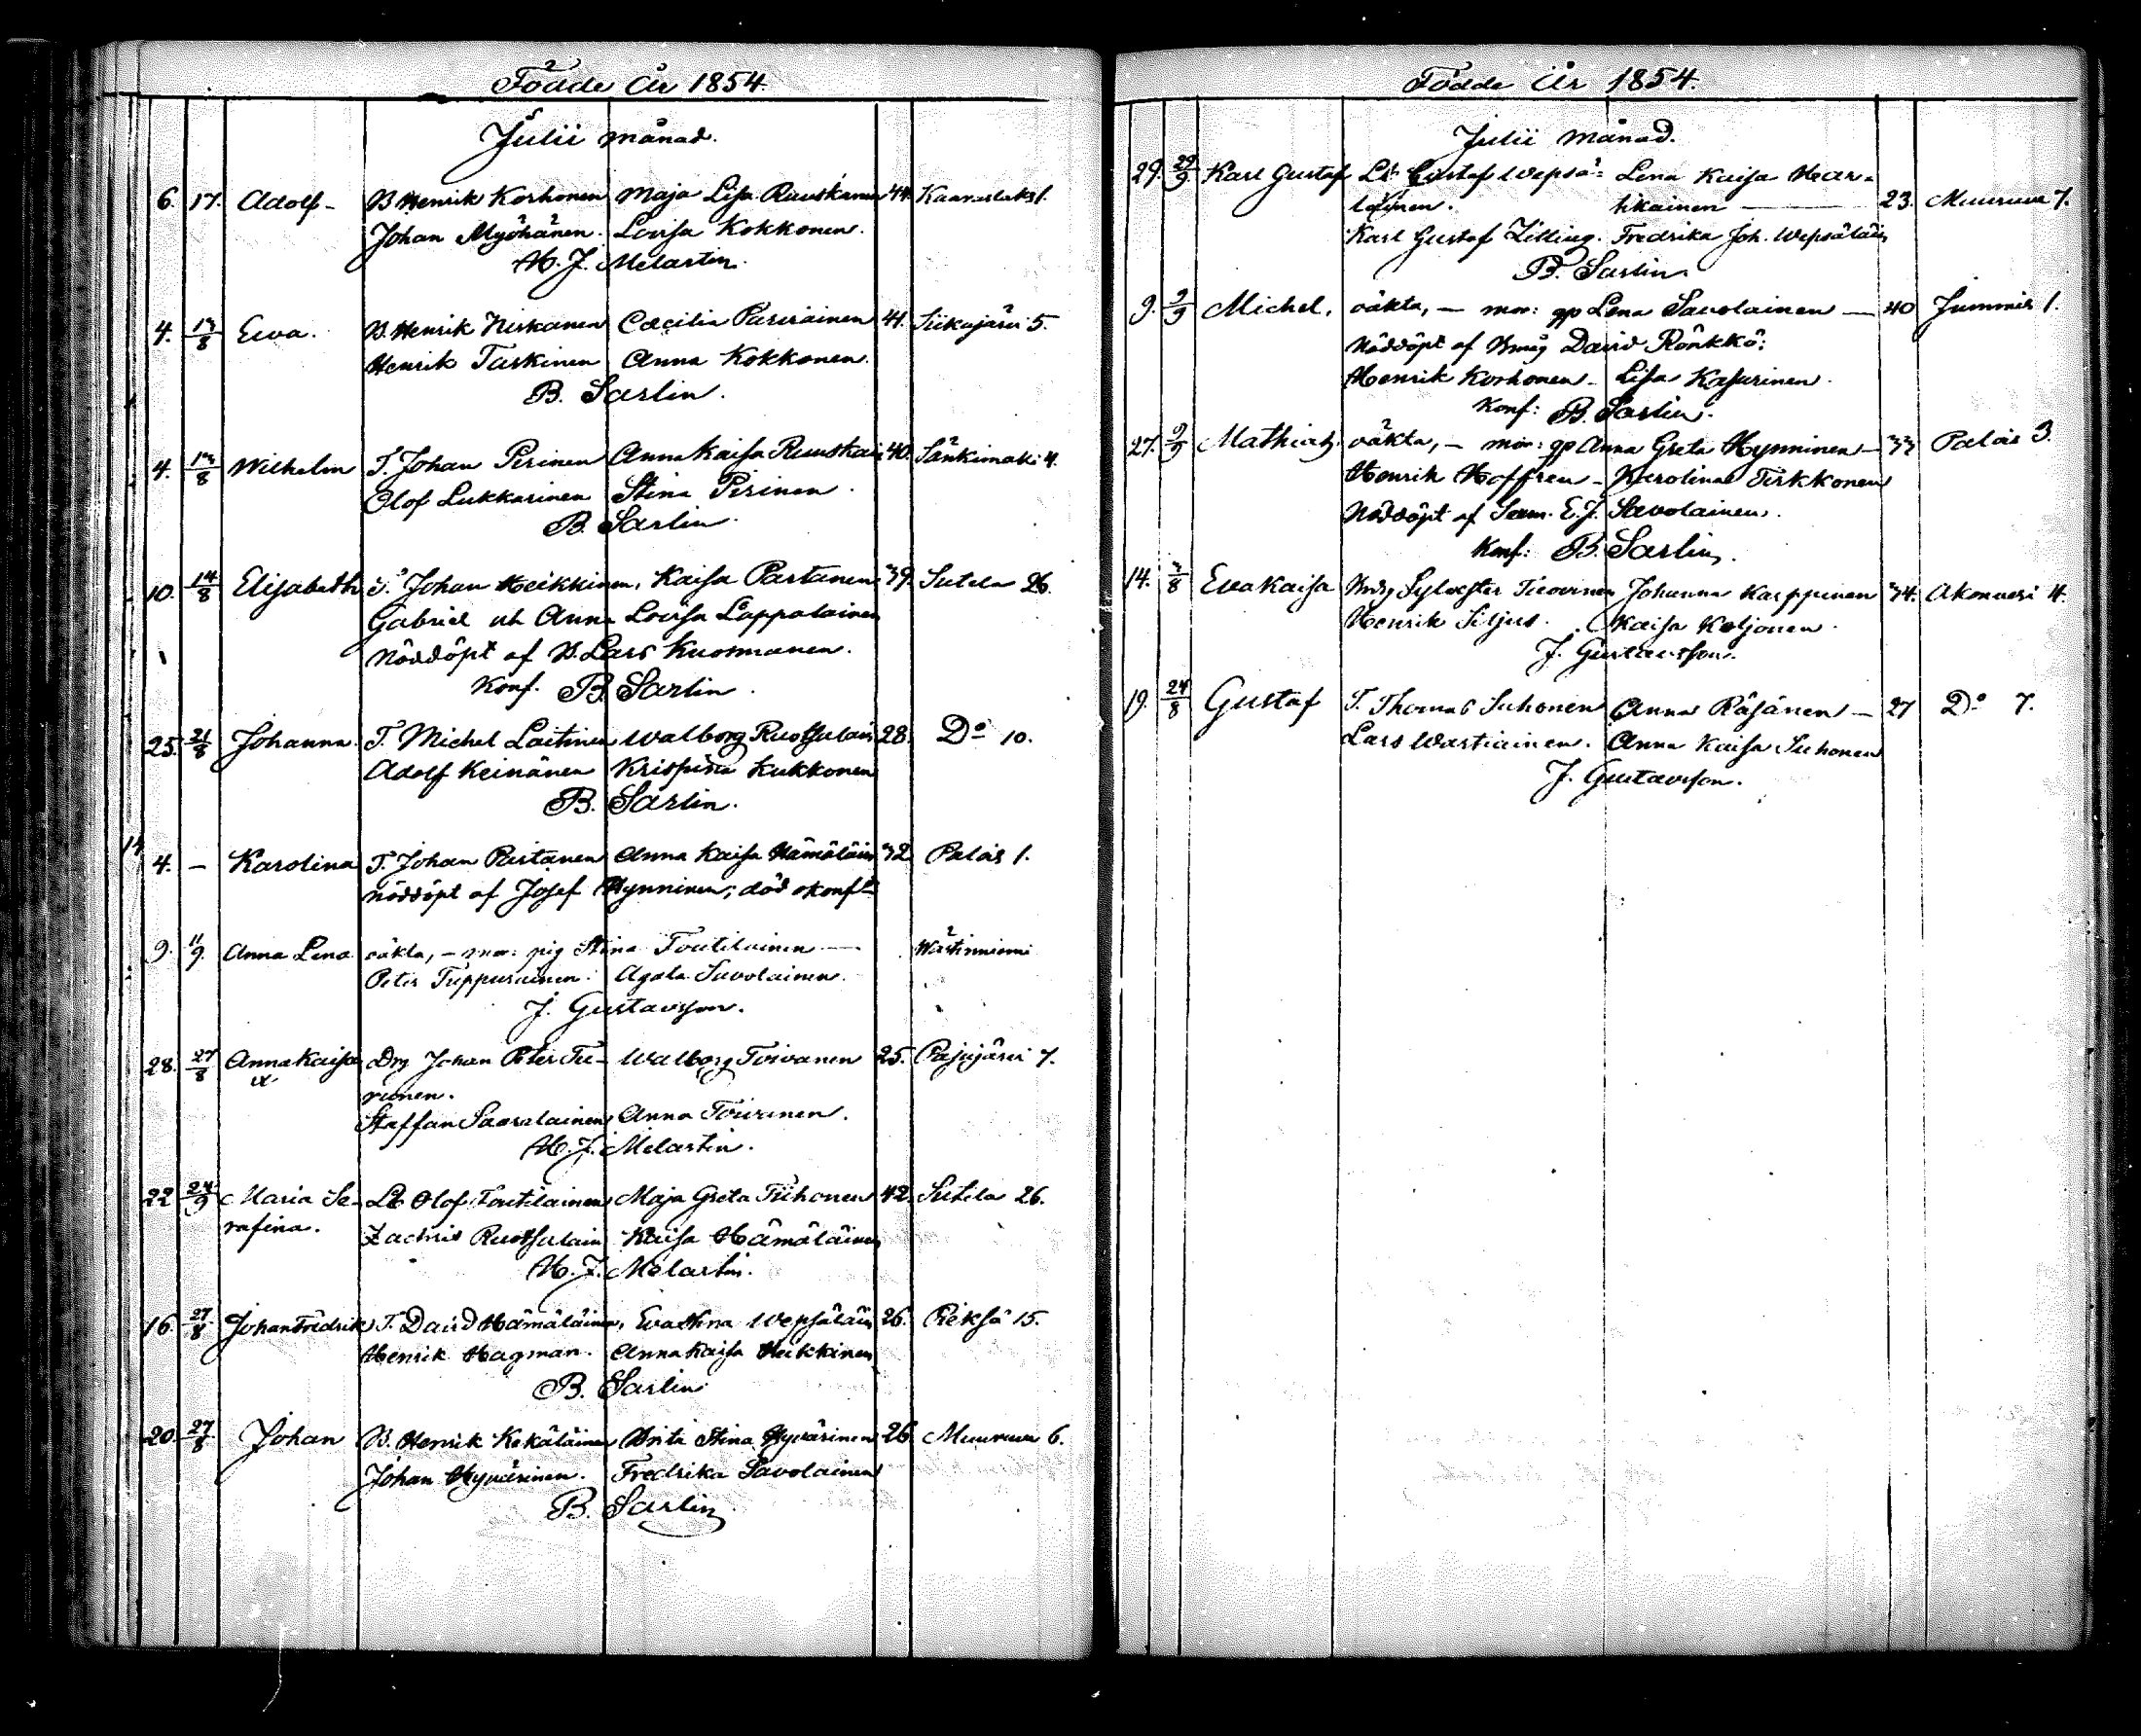 Födde År 1854.
Julii månad.
6. 17. Adolf - B Henrik Korhonen Maja Lisa Ruuskanen 44. Kaavinlaks 1.
Johan Myöhänen. Lovisa Kokkonen.
H. J. Melartin.
4. 13/8 Ewa. B. Henrik Niskanen Cæcilia Parviainen 41. Siikajärvi 5.
Henrik Taskinen Anna Kokkonen.
B. Sarlin.
4. 13/8 Wilhelm T. Johan Pirinen Anna Kaisa Ruuskai 40. Sänkimäki 4.
Olof Lukkarinen Stina Pirinen.
B. Sarlin.
10. 14/8 Elisabeth T. Johan Heikkinen, Kaisa Partanen 39. Sutela 26.
Gabriel och Anna Lovisa Lappalainen
Nöddöpt af B. Lars Kuosmanen.
Konf. B. Sarlin.
25. 21/8 Johanna. T. Michel Laitinen Walborg Ruotsalain 28. Do 10.
Adolf Keinänen Krispina Kukkonen
B. Sarlin.
14
4. - Karolina T. Johan Partanen Anna Kaisa Hämäläin 32 Palois 1.
Nöddöpt af Josef Hynninen; död okonft
9. 11/9 Anna Lena oäkta, - mor: pig Stina Toutilainen — Wästinniemi
Peter Tuppurainen. Agata Savolainen.
J. Gustavsson.
28. 27/8 Anna Kaisa Drg Johan Peter Tu- Walborg Toivanen 25. Pajujärvi 7.
runen.
Staffan Savolainen Anna Toivanen.
H. J. Melartin.
22 24/9 Maria Se- Lt Olof Toutilainen Maja Greta Tiihonen 42 Sutela 26.
rafina. Zachris Ruotsalain Kaisa Hämäläinen
H. J. Melartin.
16. 27/8 Johan Fredrik T. David Hämäläinen, Eva Stina Wepsäläin 26. Rieksä 15.
Henrik Hagman. Anna Kaisa Heikkinen
B. Sarlin
20. 27/8 Johan B. Henrik Kekäläinen Brita Stina Hyvärinen 26 Muuruwe 6.
Johan Hyvärinen. Fredrika Savolainen
B. Sarlin
Födde År 1854.
Julii månad.
29. 29/9 Karl Gustaf Lt Gustaf Wepsä= Lena Kaisa Har=
läinen. tikainen — 23. Muuruwe 7.
Karl Gustaf Zitting. Fredrika Joh. Wepsäläin
B. Sarlin
9. 9/9 Michel. oäkta, — mor: gp Lena Savolainen — 40 Jummis 1.
Nöddöpt af Bmåg David Rönkkö:
Henrik Korhonen - Lisa Kasurinen.
Konf: B. Sarlin.
27. 9/9 Mathias oäkta, - mor: gp Anna Greta Hynninen — 33 Palois 3.
Henrik Hoffren - Karolina Tirkkonen
Nöddöpt af E. J. Savolainen.
Konf: B. Sarlin.
14. 3/8 Eva Kaisa Bmåg Sylvester Tirronen Johanna Karppinen 34. Akonvesi 4.
Henrik Siljus. Kaisa Koljonen.
J. Gustavsson.
19. 24/8 Gustaf T. Thomas Suhonen Anna Räsänen — 27 Do 7.
Lars Wartiainen. Anna Kaisa Suhonen
J. Gustavsson.